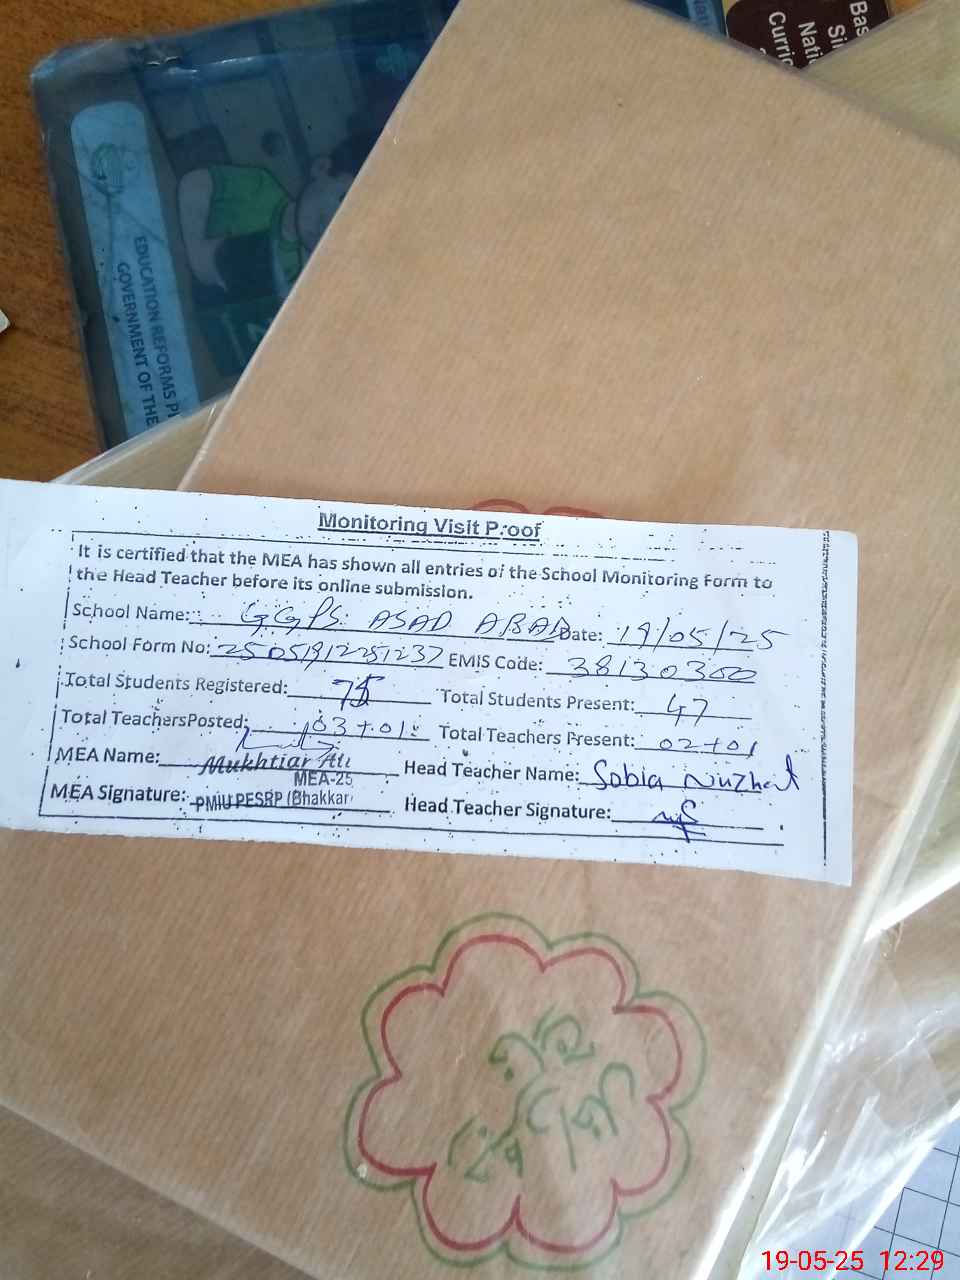 Bas
Sin
Nati
Curric
EDUCATION REFORMS P
GOVERNMENT OF THE
Monitoring Visit Proof
It is certified that the MEA has shown all entries of the School Monitoring Form to
the Head Teacher before its online submission.
School Name: GGPS ASAD ABAD Date: 19/05/25
School Form No: EMIS Code: 38130300
Total Students Registered: 75 Total Students Present: 47
Total Teachers Posted: 03+01 Total Teachers Present: 02+01
MEA Name: Mukhtiar Ali Head Teacher Name: Sobia Nuzhat
MEA-25
MEA Signature: PMIU PESRP (Bhakkar Head Teacher Signature:
19-05-25 12:29